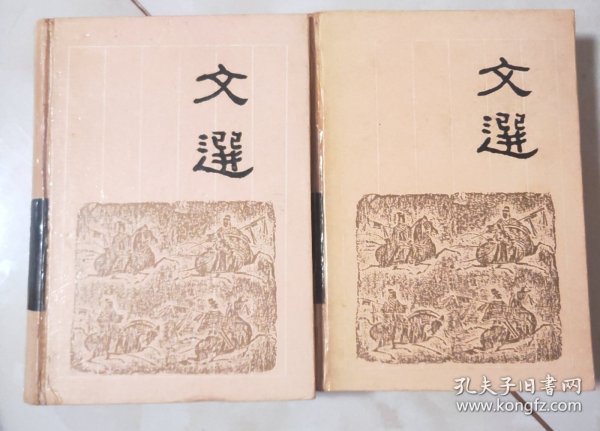 文選
文選
孔夫子旧书网
www.kongfz.com